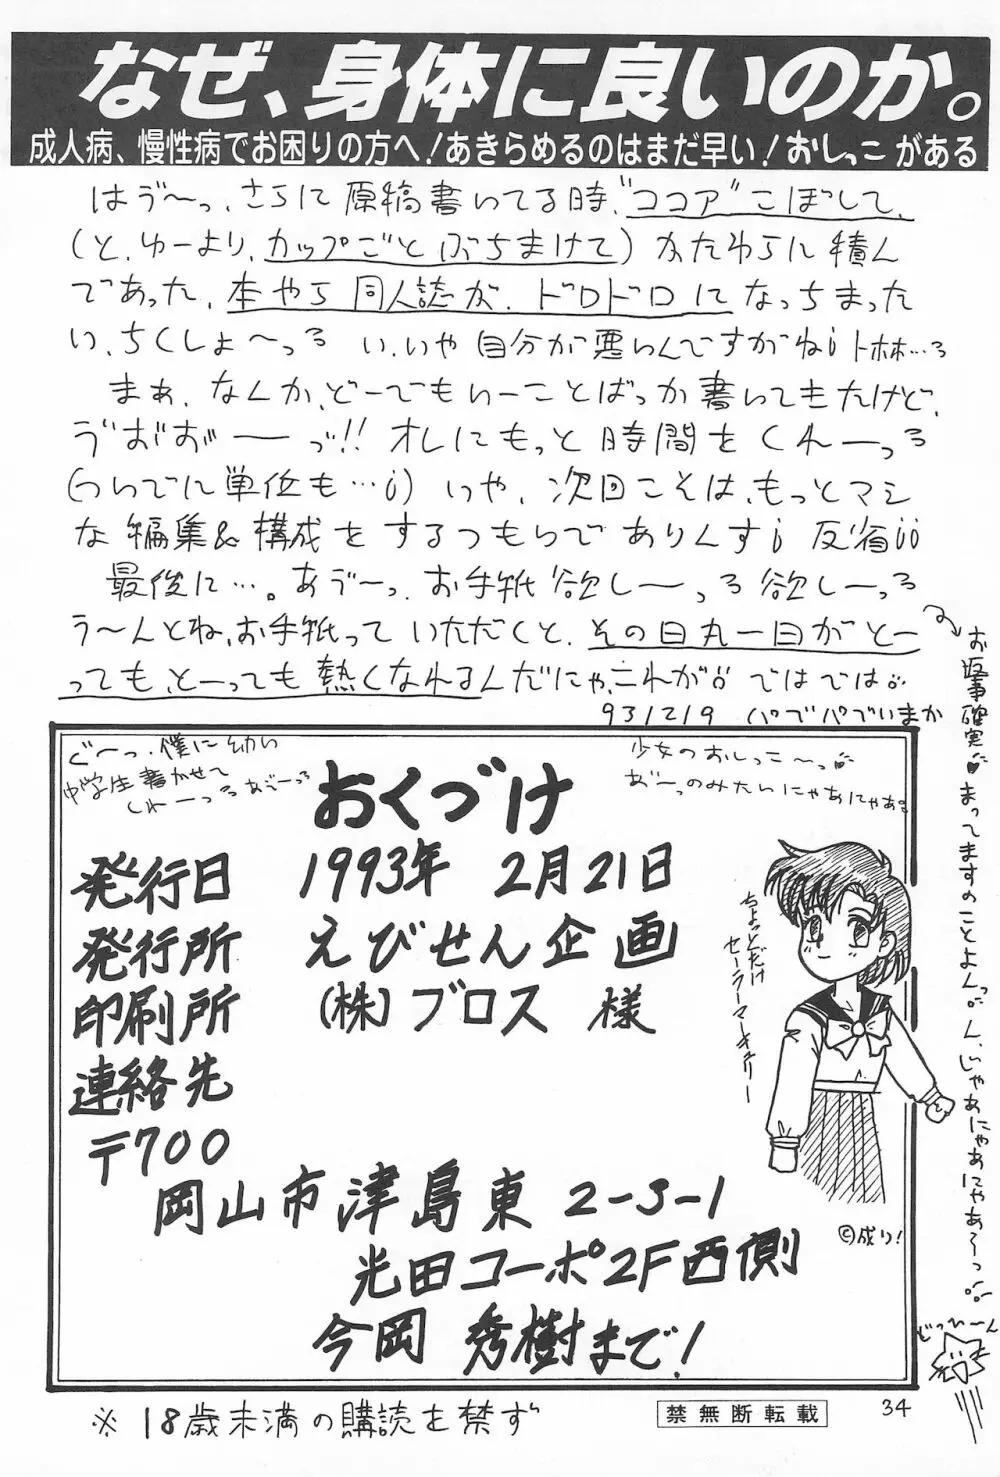 なぜ、身体に良いのか。
成人病、慢性病でお困りの方へ!あきらめるのはまだ早い!おしっこがある
はう゛〜っ、さらに原稿書いてる時、"ココア"こぼして、
(と、ゆーより、カップごとぶちまけて)かたわらに積ん
であった、本やら同人誌が、ドロドロになっちまった
い、ちくしょ〜っる い、いや自分が悪いんですがねi トホホ…る
まぁ、なんか、どーでもいーことばっか書いてきたけど、
う゛おお゛お゛ーっ゛!! オレにもっと時間をくれーっる
(ついでに単位も…i) いや、次回こそは、もっとマシ
な編集&構成をするつもりでありんすi 反省ii
最後に…。あう゛ーっ、お手紙欲しーっる欲しーっる
う〜んとね、お手紙っていただくと、その日丸一日がとー
っても、とーっても熱くなれるんだにゃ、これが。ではでは。
931219 パブパブいまか
お返事確実 まってますのことよんっ ん、じゃあにゃあにゃあ〜っ
どっひーん
おくづけ
発行日 1993年 2月21日
発行所 えびせん企画
印刷所 (株)ブロス 様
連絡先
〒700
岡山市津島東2-3-1
光田コーポ2F西側
今岡 秀樹まで!
ちょっとだけ
セーラーマーキュリー
©成り!
※18歳未満の購読を禁ず
禁無断転載
34